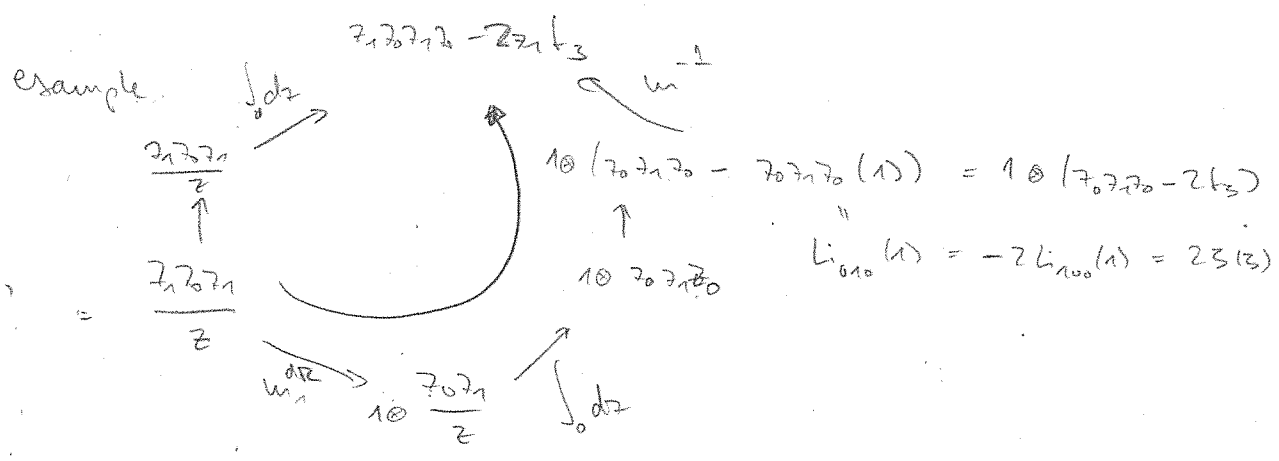 z₁z₀z₁z₀ - 2z₁ζ₃
example. ∫₀dz m⁻¹
z₁z₀z₁ / z
1⊗(z₀z₁z₀ - z₀z₁z₀(1)) = 1⊗(z₀z₁z₀ - 2ζ₃)
"
1⊗ z₀z₁z₀ Li₀₁₀(1) = -2Li₁₀₀(1) = 2ζ(3)
= z₁z₀z₁ / z
m₁^dR 1⊗ z₀z₁ / z ∫₀dz